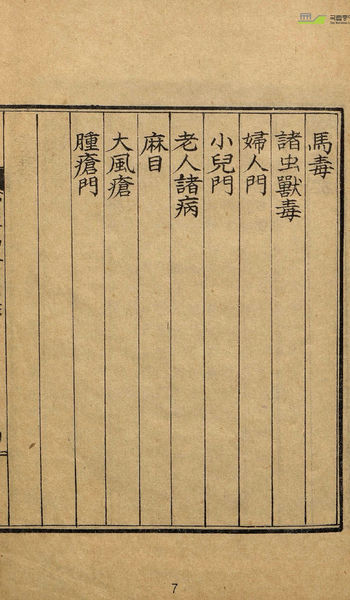 馬毒
諸虫獸毒
婦人門
小兒門
老人諸病
麻目
大風瘡
腫瘡門
7